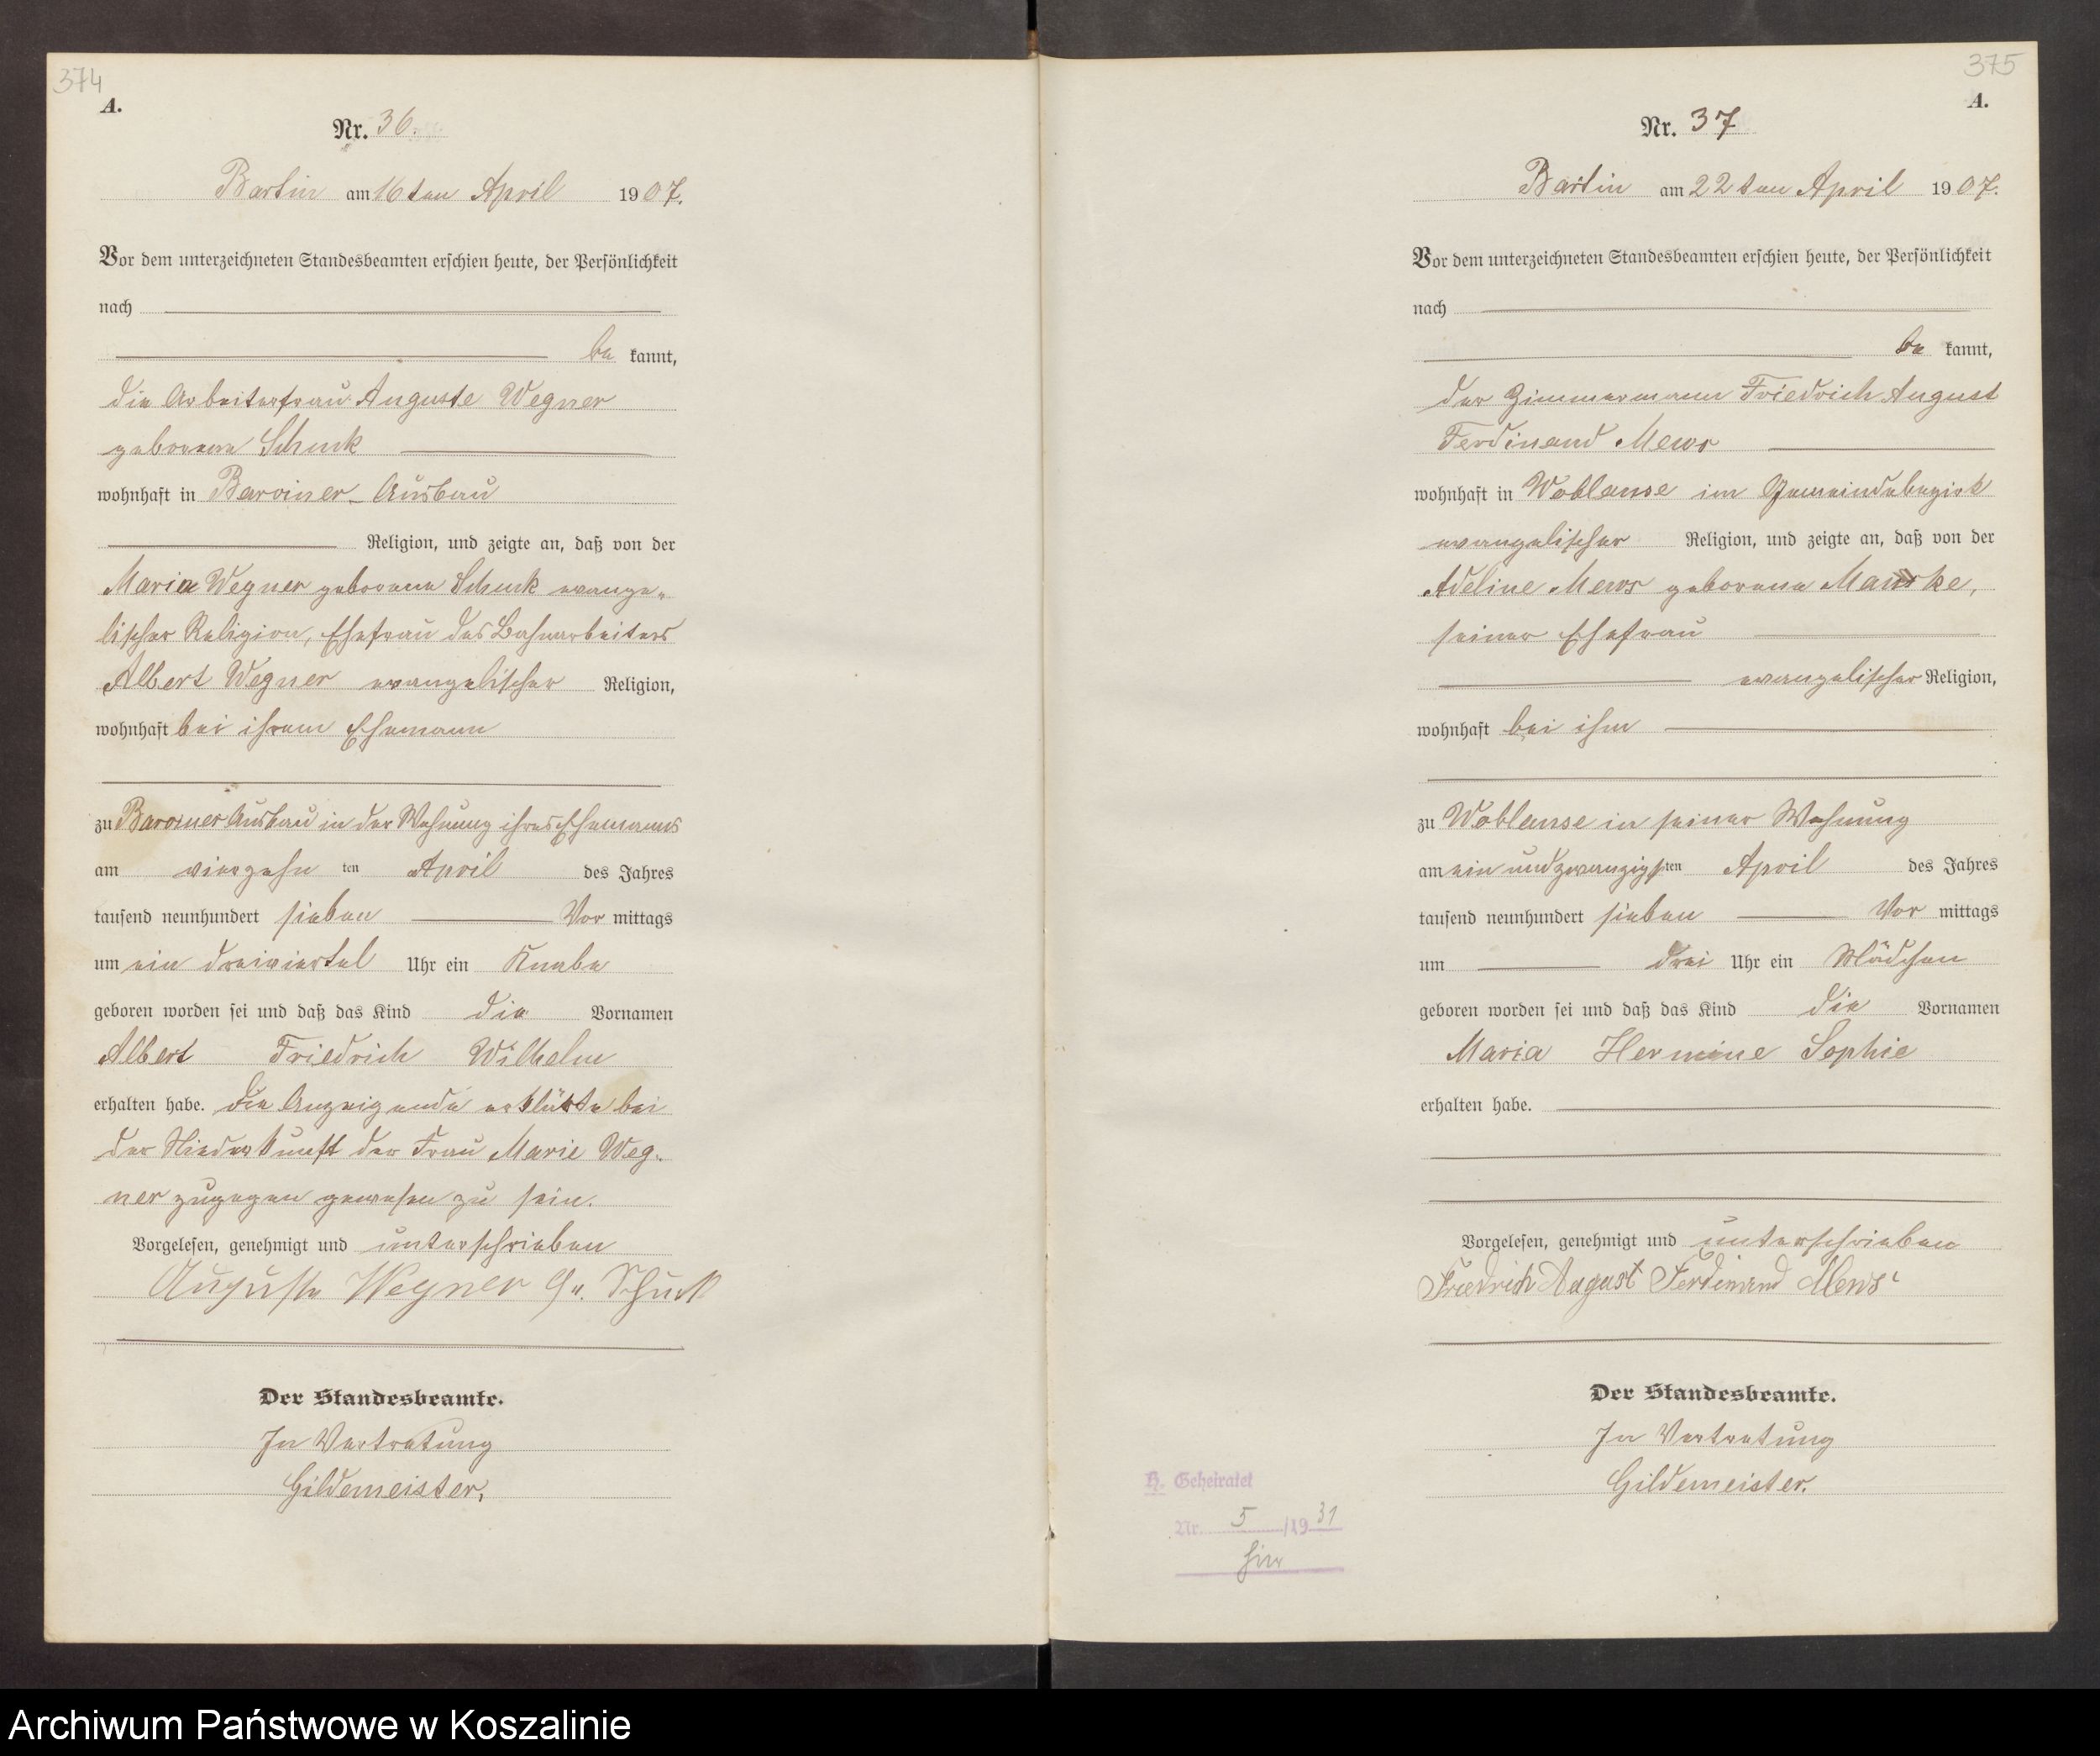 374
A.
Nr. 36.
Bartin am 16ten April 1907.
Vor dem unterzeichneten Standesbeamten erschien heute, der Persönlichkeit
nach
be kannt,
die Arbeiterfrau Auguste Wegner
geborene Schuk
wohnhaft in Barviner Ausbau
Religion, und zeigte an, daß von der
Maria Wegner geborene Schuk evange-
lischer Religion, Ehefrau des Bahnarbeiters
Albert Wegner evangelischer Religion,
wohnhaft bei ihrem Ehemann
zu Barviner Ausbau in der Wohnung ihres Ehemanns
am vierzehn ten April des Jahres
tausend neunhundert sieben Vor mittags
um ein dreiviertel Uhr ein Knabe
geboren worden sei und daß das Kind die Vornamen
Albert Friedrich Wilhelm
erhalten habe. Die Anzeigende erklärte bei
der Niederkunft der Frau Marie Weg-
ner zugegen gewesen zu sein.
Vorgelesen, genehmigt und unterschrieben
Auguste Wegner Ge. Schuk
Der Standesbeamte.
In Vertretung
Gildemeister.
375
A.
Nr. 37
Bartin am 22ten April 1907.
Vor dem unterzeichneten Standesbeamten erschien heute, der Persönlichkeit
nach
be kannt,
der Zimmermann Friedrich August
Ferdinand Mews
wohnhaft in Woblanse im Gemeindebezirk
evangelischer Religion, und zeigte an, daß von der
Adeline Mews geborene
seiner Ehefrau
evangelischer Religion,
wohnhaft bei ihm
zu Woblanse in seiner Wohnung
am ein und zwanzigsten April des Jahres
tausend neunhundert sieben Vor mittags
um drei Uhr ein Mädchen
geboren worden sei und daß das Kind die Vornamen
Maria Hermine Sophie
erhalten habe.
Vorgelesen, genehmigt und unterschrieben
Friedrich August Ferdinand Mews
Der Standesbeamte.
In Vertretung
Gildemeister.
H. Geheiratet
Nr. 5 /1931
hier
Archiwum Państwowe w Koszalinie